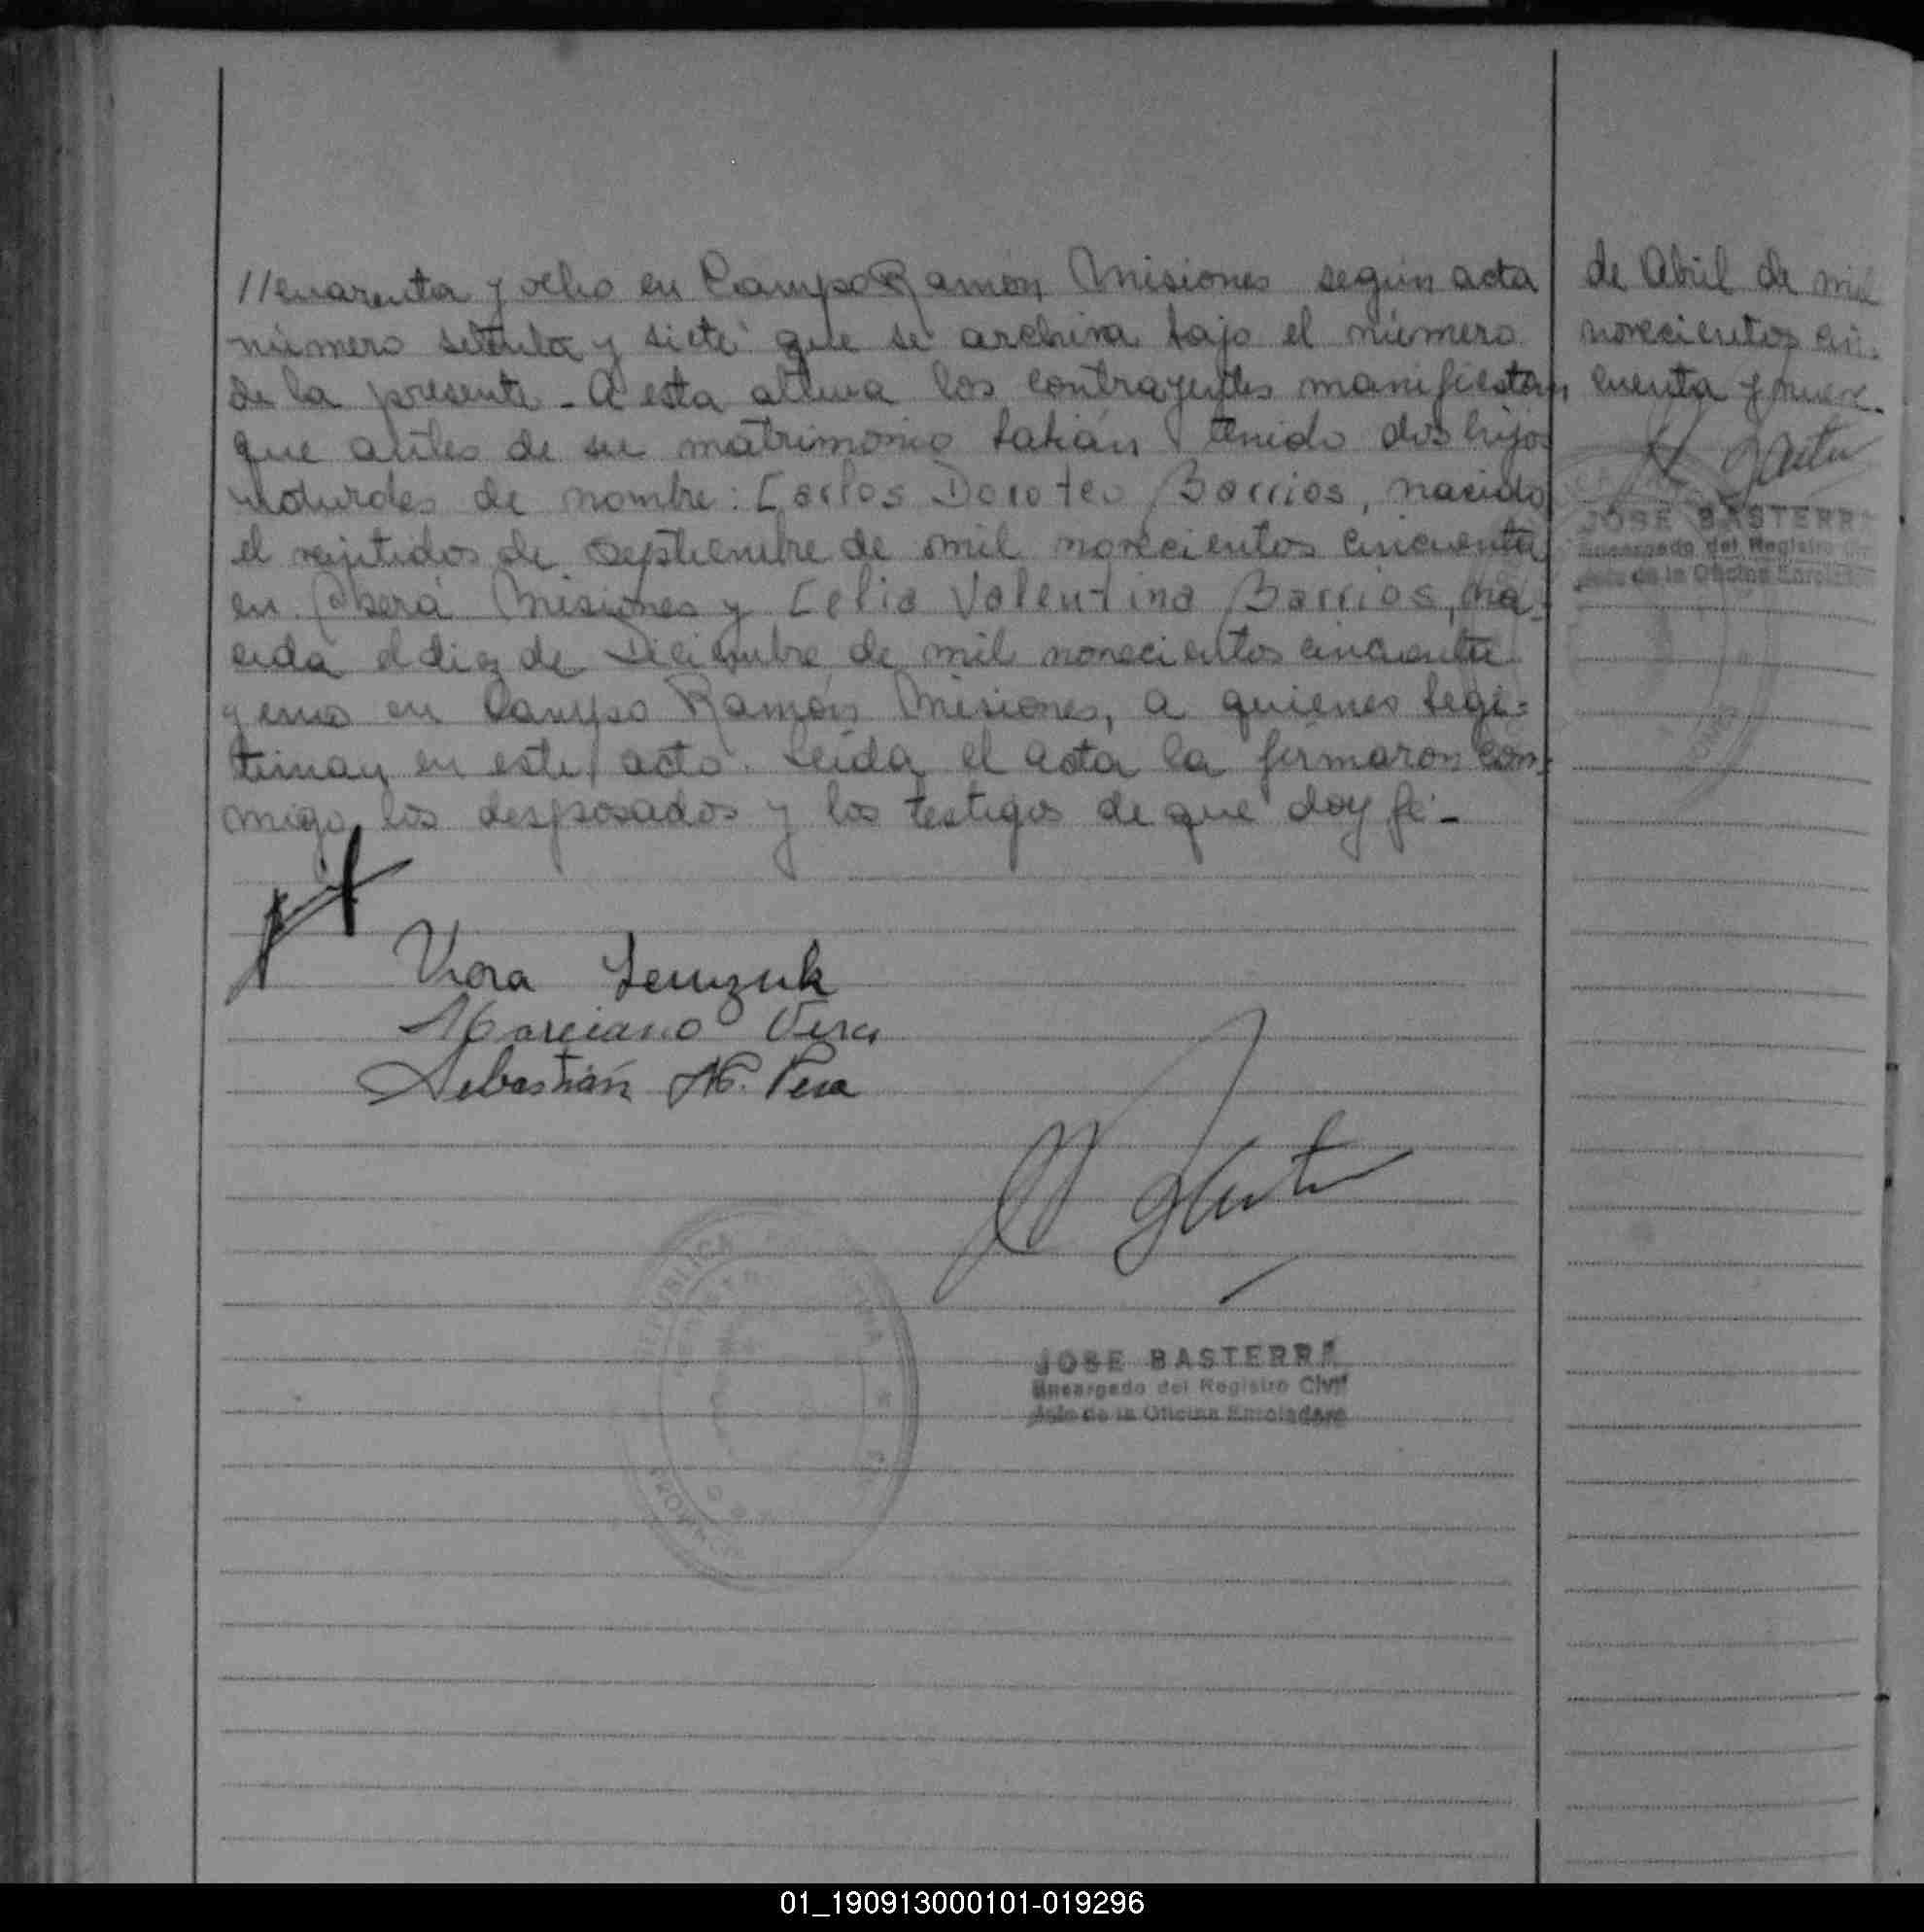 //cuarenta y ocho en Campo Ramón Misiones según acta
número setenta y siete que se archiva bajo el número
de la presente - A esta altura los contrayentes manifiestan
que antes de su matrimonio habían tenido dos hijos
naturales de nombre: Carlos Doroteo Barrios, nacido
el veintidos de Septiembre de mil novecientos cincuenta
en Oberá Misiones y Celia Valentina Barrios, na-
cida el diez de Diciembre de mil novecientos cincuenta
y uno en Campo Ramón Misiones, a quienes legi-
timan en este acto. Leída el acta la firmaron con-
migo los desposados y los testigos de que doy fé -
Marciano Vera
Sebastián
JOSE BASTERRA
Encargado del Registro Civil
Jefe de la Oficina Enroladora
REPUBLICA
de Abril de mil
novecientos cin-
cuenta y nueve.
JOSE BASTERRA
Encargado del Registro
Jefe de la Oficina
01_190913000101-019296